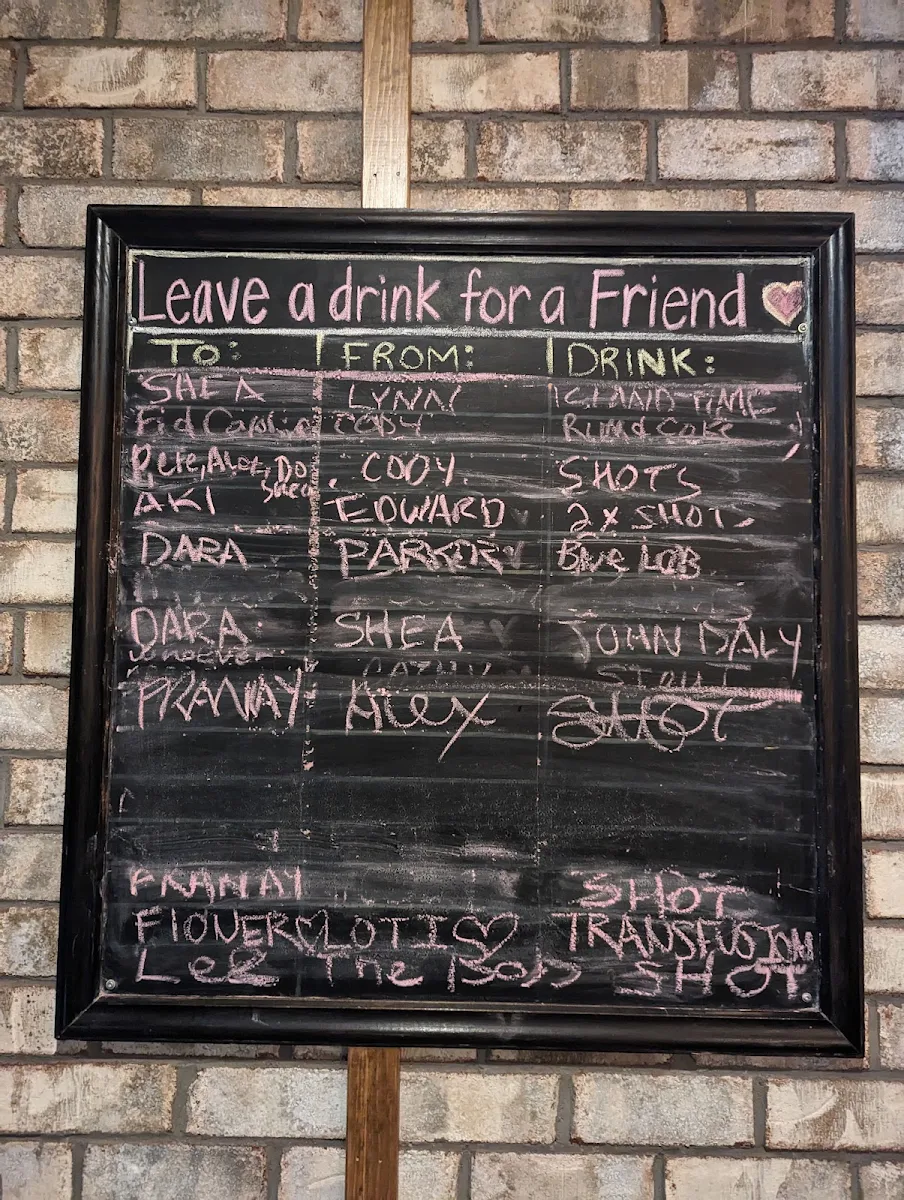 Leave a drink for a Friend
TO: FROM: DRINK:
SHEA LYNN ISLAND TIME
CODY RUM & COKE
Pete, Alex, Do Shea CODY SHOTS
AKI EDWARD 2X SHOTS
DARA PARKER BLUE LAB
DARA SHEA JOHN DALY
CATHY STOUT
PRANAY Alex SHOT
PRANAY SHOT
FlOWER LOTIS TRANSFUSION
Lee The Bob SHOT